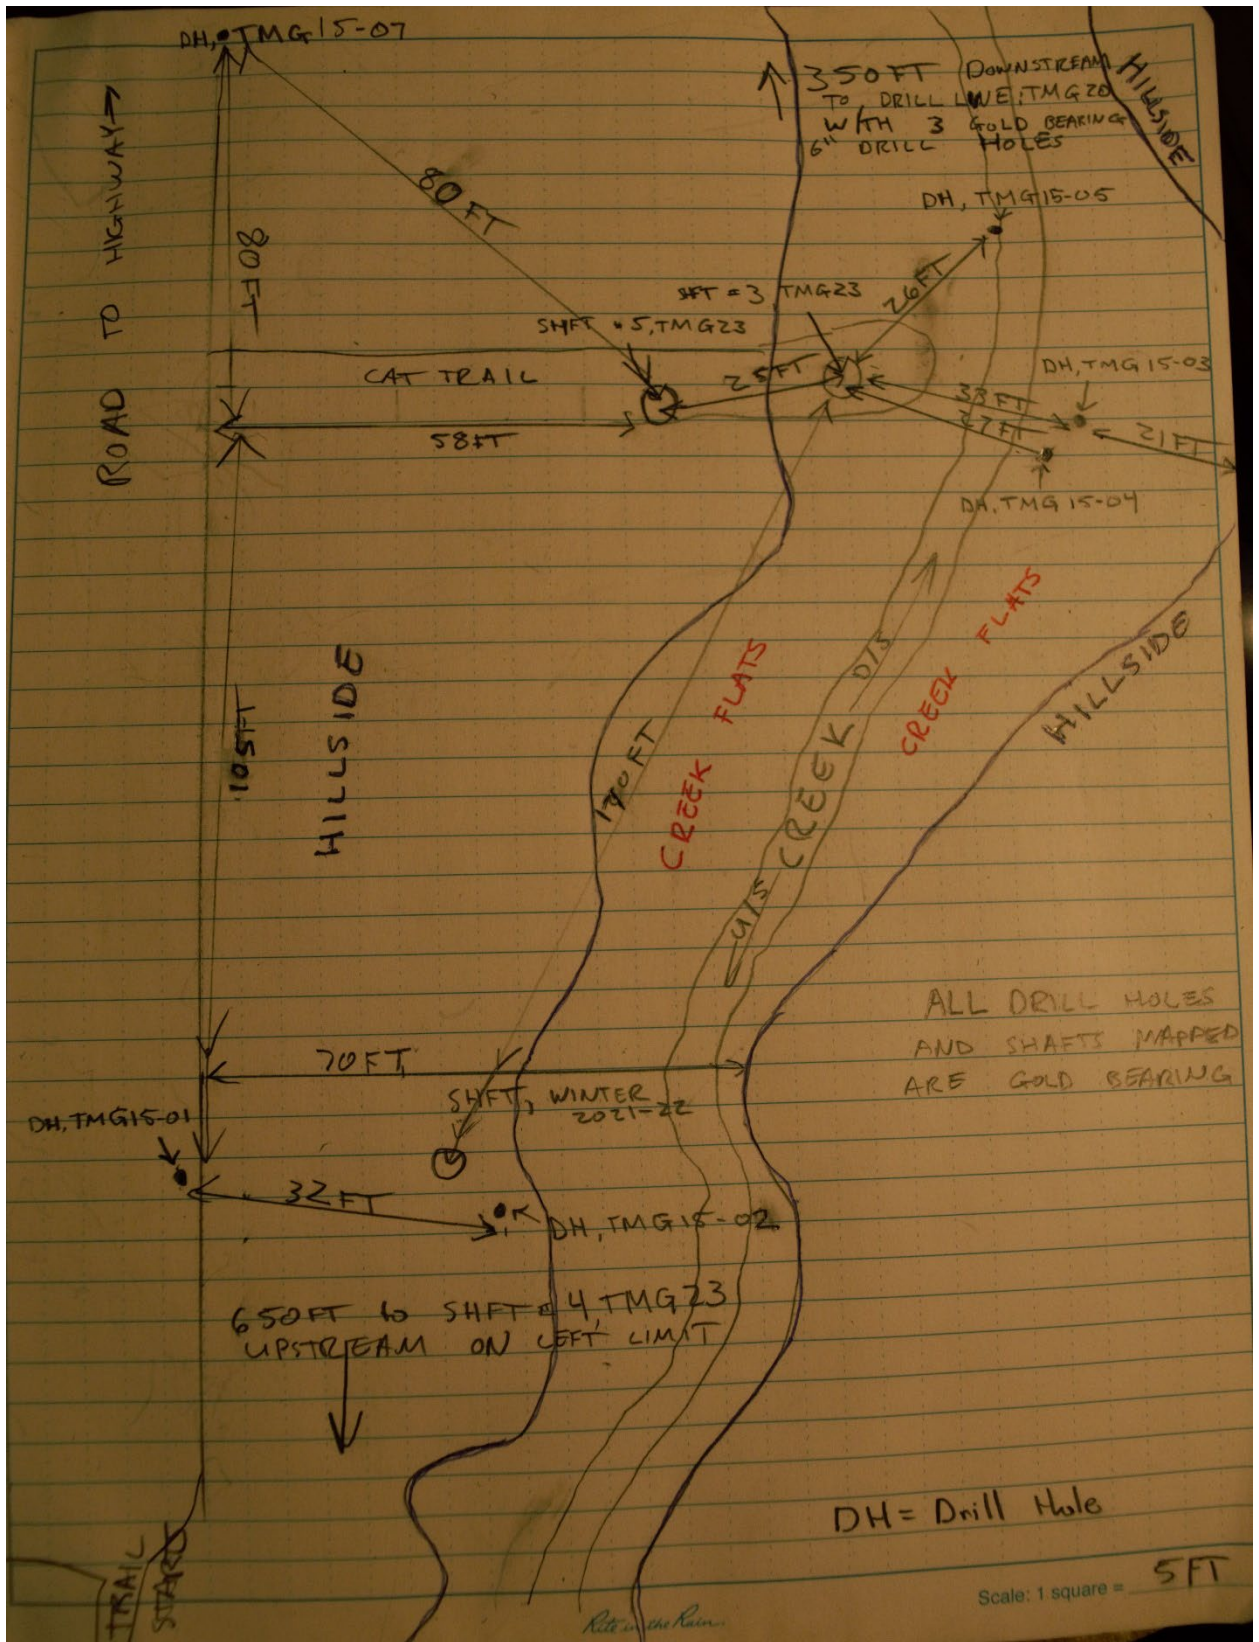 DH, TMG 15-07
350FT DOWNSTREAM
TO DRILL LINE, TMG20
WITH 3 GOLD BEARING
6" DRILL HOLES
HILLSIDE
ROAD TO HIGHWAY
80 FT
80FT
DH, TMG15-05
26FT
SHFT = 3, TMG23
SHFT = 5, TMG23
25FT
CAT TRAIL
58FT
DH, TMG 15-03
33FT
27FT
21FT
DH, TMG 15-04
105FT
HILLSIDE
FT
CREEK FLATS
U/S CREEK D/S
CREEK FLATS
HILLSIDE
ALL DRILL HOLES
AND SHAFTS MAPPED
ARE GOLD BEARING
70FT
SHFT, WINTER
2021-22
DH, TMG15-01
32FT
DH, TMG15-02
650FT to SHFT = 4, TMG23
UPSTREAM ON LEFT LIMIT
TRAIL
START
DH = Drill Hole
Scale: 1 square = 5FT
Rite in the Rain